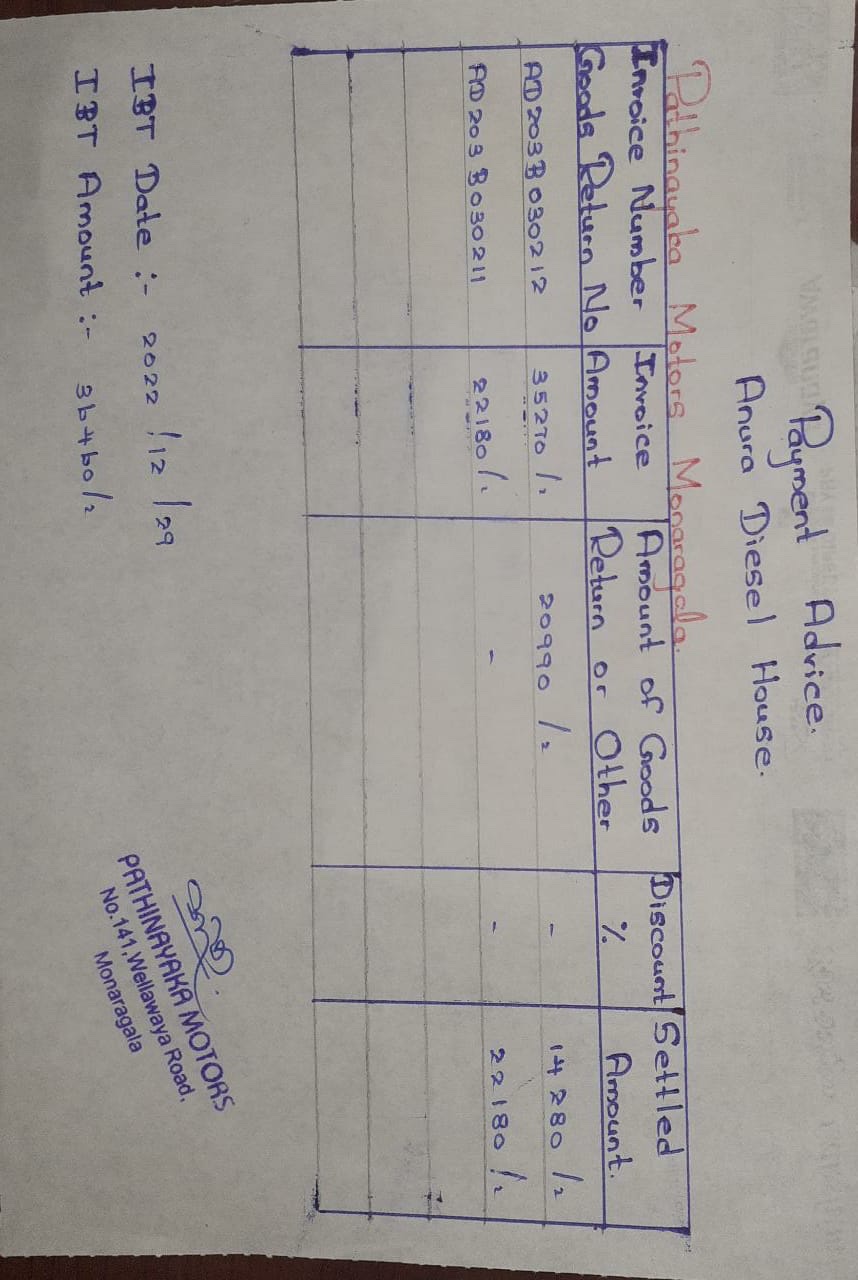 Payment Advice.
Anura Diesel House.
Pathinayaka Motors Monaragala.
Invoice Number Invoice Amount of Goods Discount Settled
Goods Return No Amount Return or Other % Amount.
AD203B030212 35270/- 20990/- - 14280/-
AD203B030211 22180/- - - 22180/-
IBT Date :- 2022/12/29
IBT Amount :- 36460/-
PATHINAYAKA MOTORS
No:141,Wellawaya Road,
Monaragala